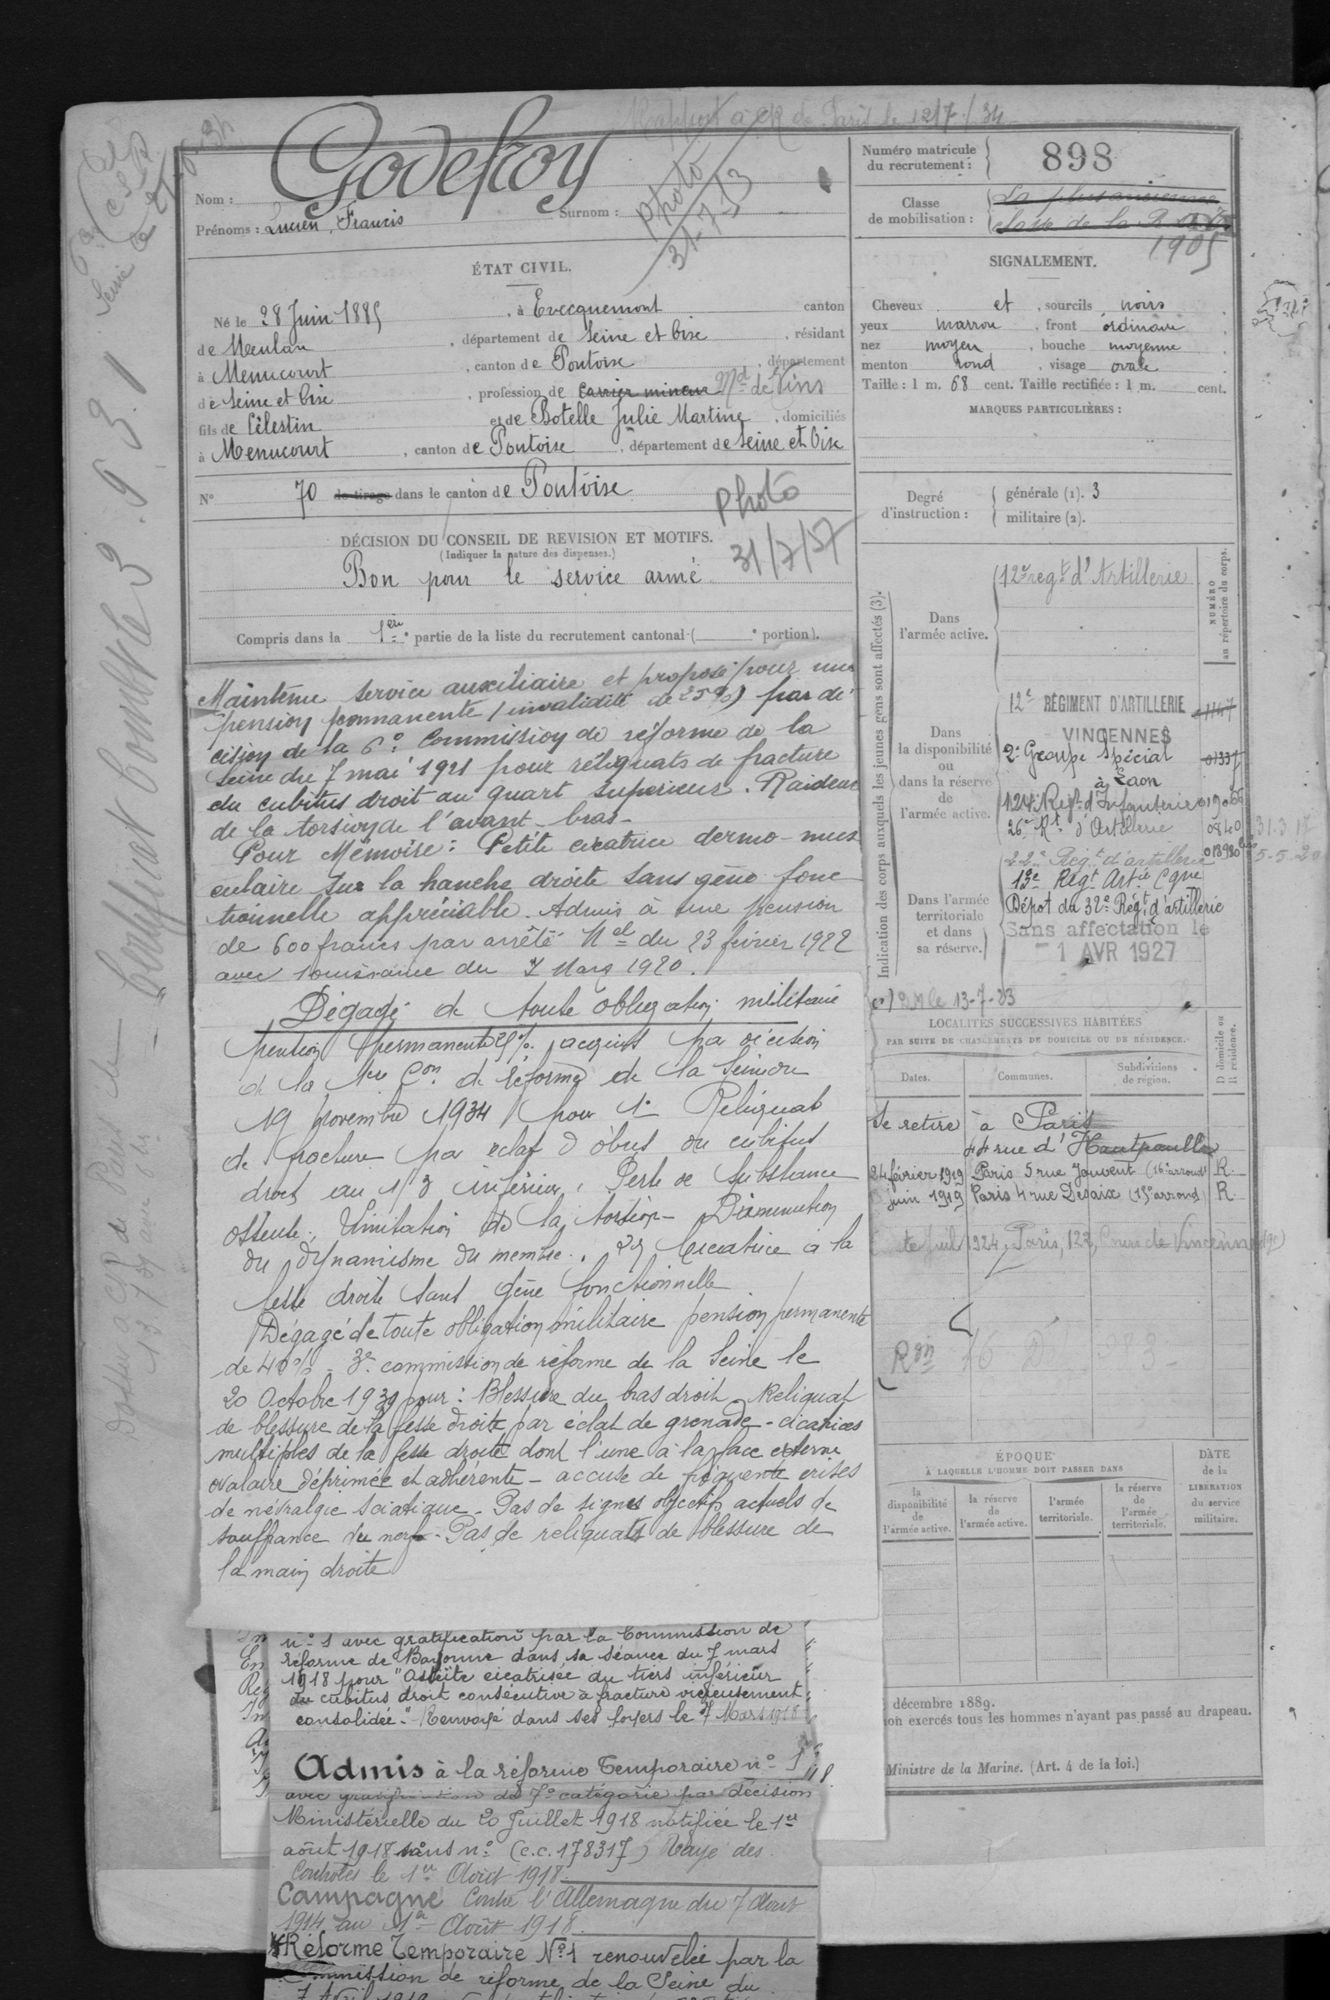 Rapport à CR de Paris le 12/7/34
Nom : Godefroy
Surnom :
Prénoms : Lucien, Francis
Photo
31-7-53
Numéro matricule du recrutement : 898
Classe de mobilisation : La plus ancienne
classe de la R
1905
ÉTAT CIVIL.
Né le 28 Juin 1885, à Evecquemont canton
de Meulan, département de Seine et Oise, résidant
à Menucourt, canton de Pontoise, département
de Seine et Oise, profession de carrier mineur Md de Vins
fils de Célestin et de Botelle Julie Martine, domiciliés
à Menucourt, canton de Pontoise, département de Seine et Oise
N° 70 de tirage dans le canton de Pontoise
Photo
31/7/57
DÉCISION DU CONSEIL DE REVISION ET MOTIFS.
(Indiquer la nature des dispenses.)
Bon pour le service armé
Compris dans la 1ère partie de la liste du recrutement cantonal ( ° portion).
SIGNALEMENT.
Cheveux et, sourcils noirs
yeux marron, front ordinaire
nez moyen, bouche moyenne
menton rond, visage ovale
Taille : 1 m. 68 cent. Taille rectifiée : 1 m. cent.
MARQUES PARTICULIÈRES :
Degré d'instruction : générale (1). 3
militaire (2).
Indication des corps auxquels les jeunes gens sont affectés (3).
NUMÉRO au répertoire du corps.
Dans l'armée active.
12e regt d'Artillerie
Dans la disponibilité ou dans la réserve de l'armée active.
12e RÉGIMENT D'ARTILLERIE
VINCENNES
2e Groupe Spécial 01337
à Laon
124e Regt d'Infanterie 019066
26e Rt d'Artillerie 0840 31-3-17
Dans l'armée territoriale et dans sa réserve.
22e Regt d'artillerie 013980 5-5-20
13e Regt Artie Cgne
Dépot du 32e Régt d'artillerie
Sans affectation le
1 AVR 1927
le 13-7-33
LOCALITÉS SUCCESSIVES HABITÉES
PAR SUITE DE CHANGEMENTS DE DOMICILE OU DE RÉSIDENCE.
Dates. Communes. Subdivisions de région. D domicile ou R résidence.
Se retire à Paris
44 rue d'Hautpoul
24 février 1919 Paris 5 rue Jouvent (16e arrond) R
juin 1919 Paris 4 rue Desaix (15e arrond) R
1924, Paris, 122, Cours de Vincennes
Maintenu service auxiliaire et proposé pour une
pension permanente (invalidité de 25%) par dé
cision de la 6e Commission de réforme de la
Seine du 7 mai 1921 pour reliquats de fracture
du cubitus droit au quart supérieur. Raideur
de la torsion de l'avant-bras -
Pour Mémoire : Petite cicatrice dermo-mus
culaire sur la hanche droite sans gêne fonc
tionnelle appréciable. Admis à une pension
de 600 francs par arrêté Nel du 23 février 1922
avec jouissance du 7 Mars 1920.
Dégagé de toute obligation militaire
pension permanente 25% acquise par décision
de la 1ère Con de réforme de la Seine du
19 novembre 1934 pour 1° Reliquat
de fracture par éclat d'obus du cubitus
droit au 1/3 inférieur, Perte de substance
osseuse, Limitation de la torsion - Diminution
du dynamisme du membre. 2° Cicatrice à la
fesse droite sans gêne fonctionnelle
Dégagé de toute obligation militaire pension permanente
de 40% - 3e commission de réforme de la Seine le
20 Octobre 1939 pour : Blessure du bras droit Reliquat
de blessure de la fesse droite par éclat de grenade - cicatrices
multiples de la fesse droite dont l'une à la face externe
ovalaire déprimée et adhérente - accuse de fréquente crises
de névralgie sciatique - Pas de signes objectifs actuels de
souffrance du nerf - Pas de reliquats de blessure de
la main droite
n° 1 avec gratification par la Commission de
réforme de Bayonne dans sa séance du 7 mars
1918 pour "Ostéite cicatrisée du tiers inférieur
du cubitus droit consécutive à fracture vicieusement
consolidée." Renvoyé dans ses foyers le 7 Mars 1918
Admis à la réforme Temporaire n° 1
avec gratification de 7e catégorie par décision
Ministérielle du 20 Juillet 1918 notifiée le 1er
août 1918 sous n° (c.c. 178317) Rayé des
Controles le 1er Août 1918.
Campagne Contre l'Allemagne du 7 Aout
1914 au 1er Août 1918.
Réforme Temporaire N° 1 renouvelée par la
Commission de réforme de la Seine du
7 Avril 1919
ÉPOQUE
À LAQUELLE L'HOMME DOIT PASSER DANS
la disponibilité de l'armée active. la réserve de l'armée active. l'armée territoriale. la réserve de l'armée territoriale.
DATE de la LIBÉRATION du service militaire.
décembre 1889.
non exercés tous les hommes n'ayant pas passé au drapeau.
Ministre de la Marine. (Art. 4 de la loi.)